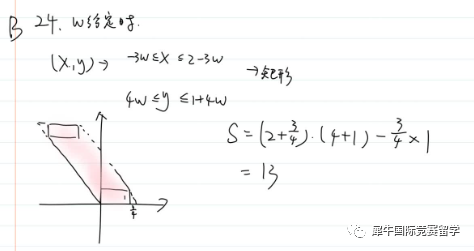 B 24. w给定时.
(x,y) → -3w ≤ x ≤ 2-3w
→矩形
4w ≤ y ≤ 1+4w
S = (2+3/4)·(4+1) - 3/4 × 1
= 13
犀牛国际竞赛留学